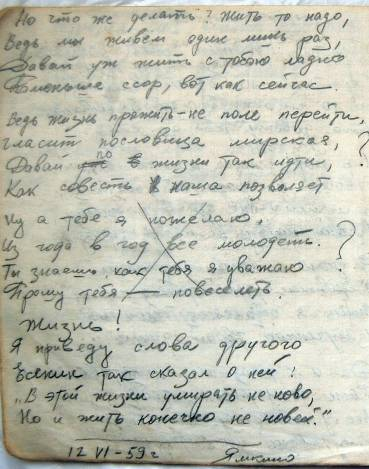 Но что же делать? Жить то надо,
Ведь мы живём один лишь раз,
Давай уж жить с тобою ладно
Поменьше ссор, вот как сейчас.
Ведь жизнь прожить-не поле перейти,
гласит пословица мирская,
Давай по жизни так идти, ?
Как совесть наша позволяет
Ну а тебе я пожелаю,
Из года в год все молодеть. ?
Ты знаешь, как тебя я уважаю
Прошу тебя — повеселеть.
Жизнь!
Я приведу слова другого
Есенин так сказал о ней!
„В этой жизни умирать не ново,
Но и жить конечно не новей."
12 VI-59 г Ямкино